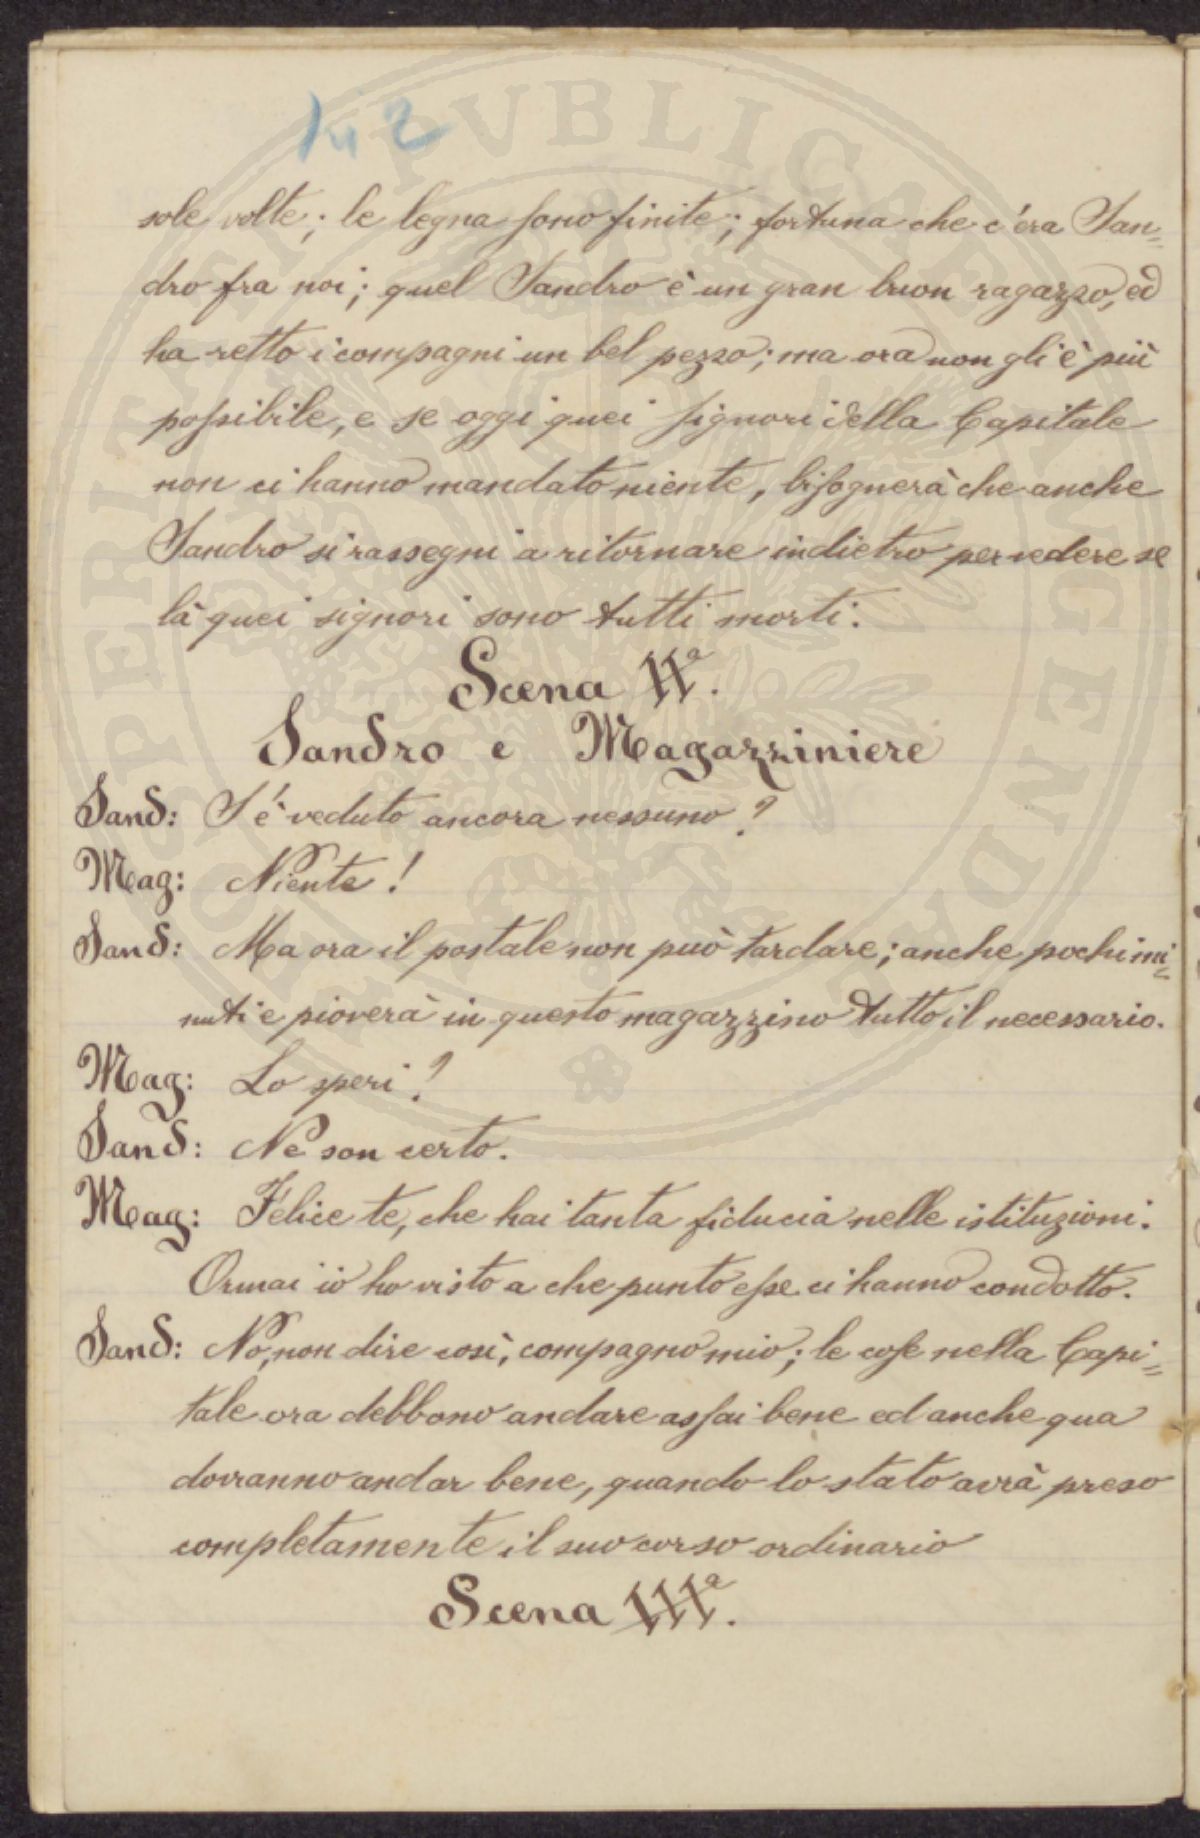 142
sole volte; le legna sono finite; fortuna che c'era San=
dro fra noi; quel Sandro è un gran buon ragazzo, ed
ha retto i compagni un bel pezzo; ma ora non gli è più
possibile, e se oggi quei signori della Capitale
non ci hanno mandato niente, bisognerà che anche
Sandro si rassegni a ritornare indietro per vedere se
là quei signori sono tutti morti.
Scena IIª.
Sandro e Magazziniere
Sand: S'é veduto ancora nessuno?
Mag: Niente!
Sand: Ma ora il postale non può tardare; anche pochi mi=
nuti e pioverà in questo magazzino tutto il necessario.
Mag: Lo speri?
Sand: Ne son certo.
Mag: Felice te, che hai tanta fiducia nelle istituzioni.
Ormai io ho visto a che punto esse ci hanno condotto.
Sand: No, non dire così, compagno mio; le cose nella Capi=
tale ora debbono andare assai bene ed anche qua
dovranno andar bene, quando lo stato avrà preso
completamente il suo corso ordinario
Scena IIIª.